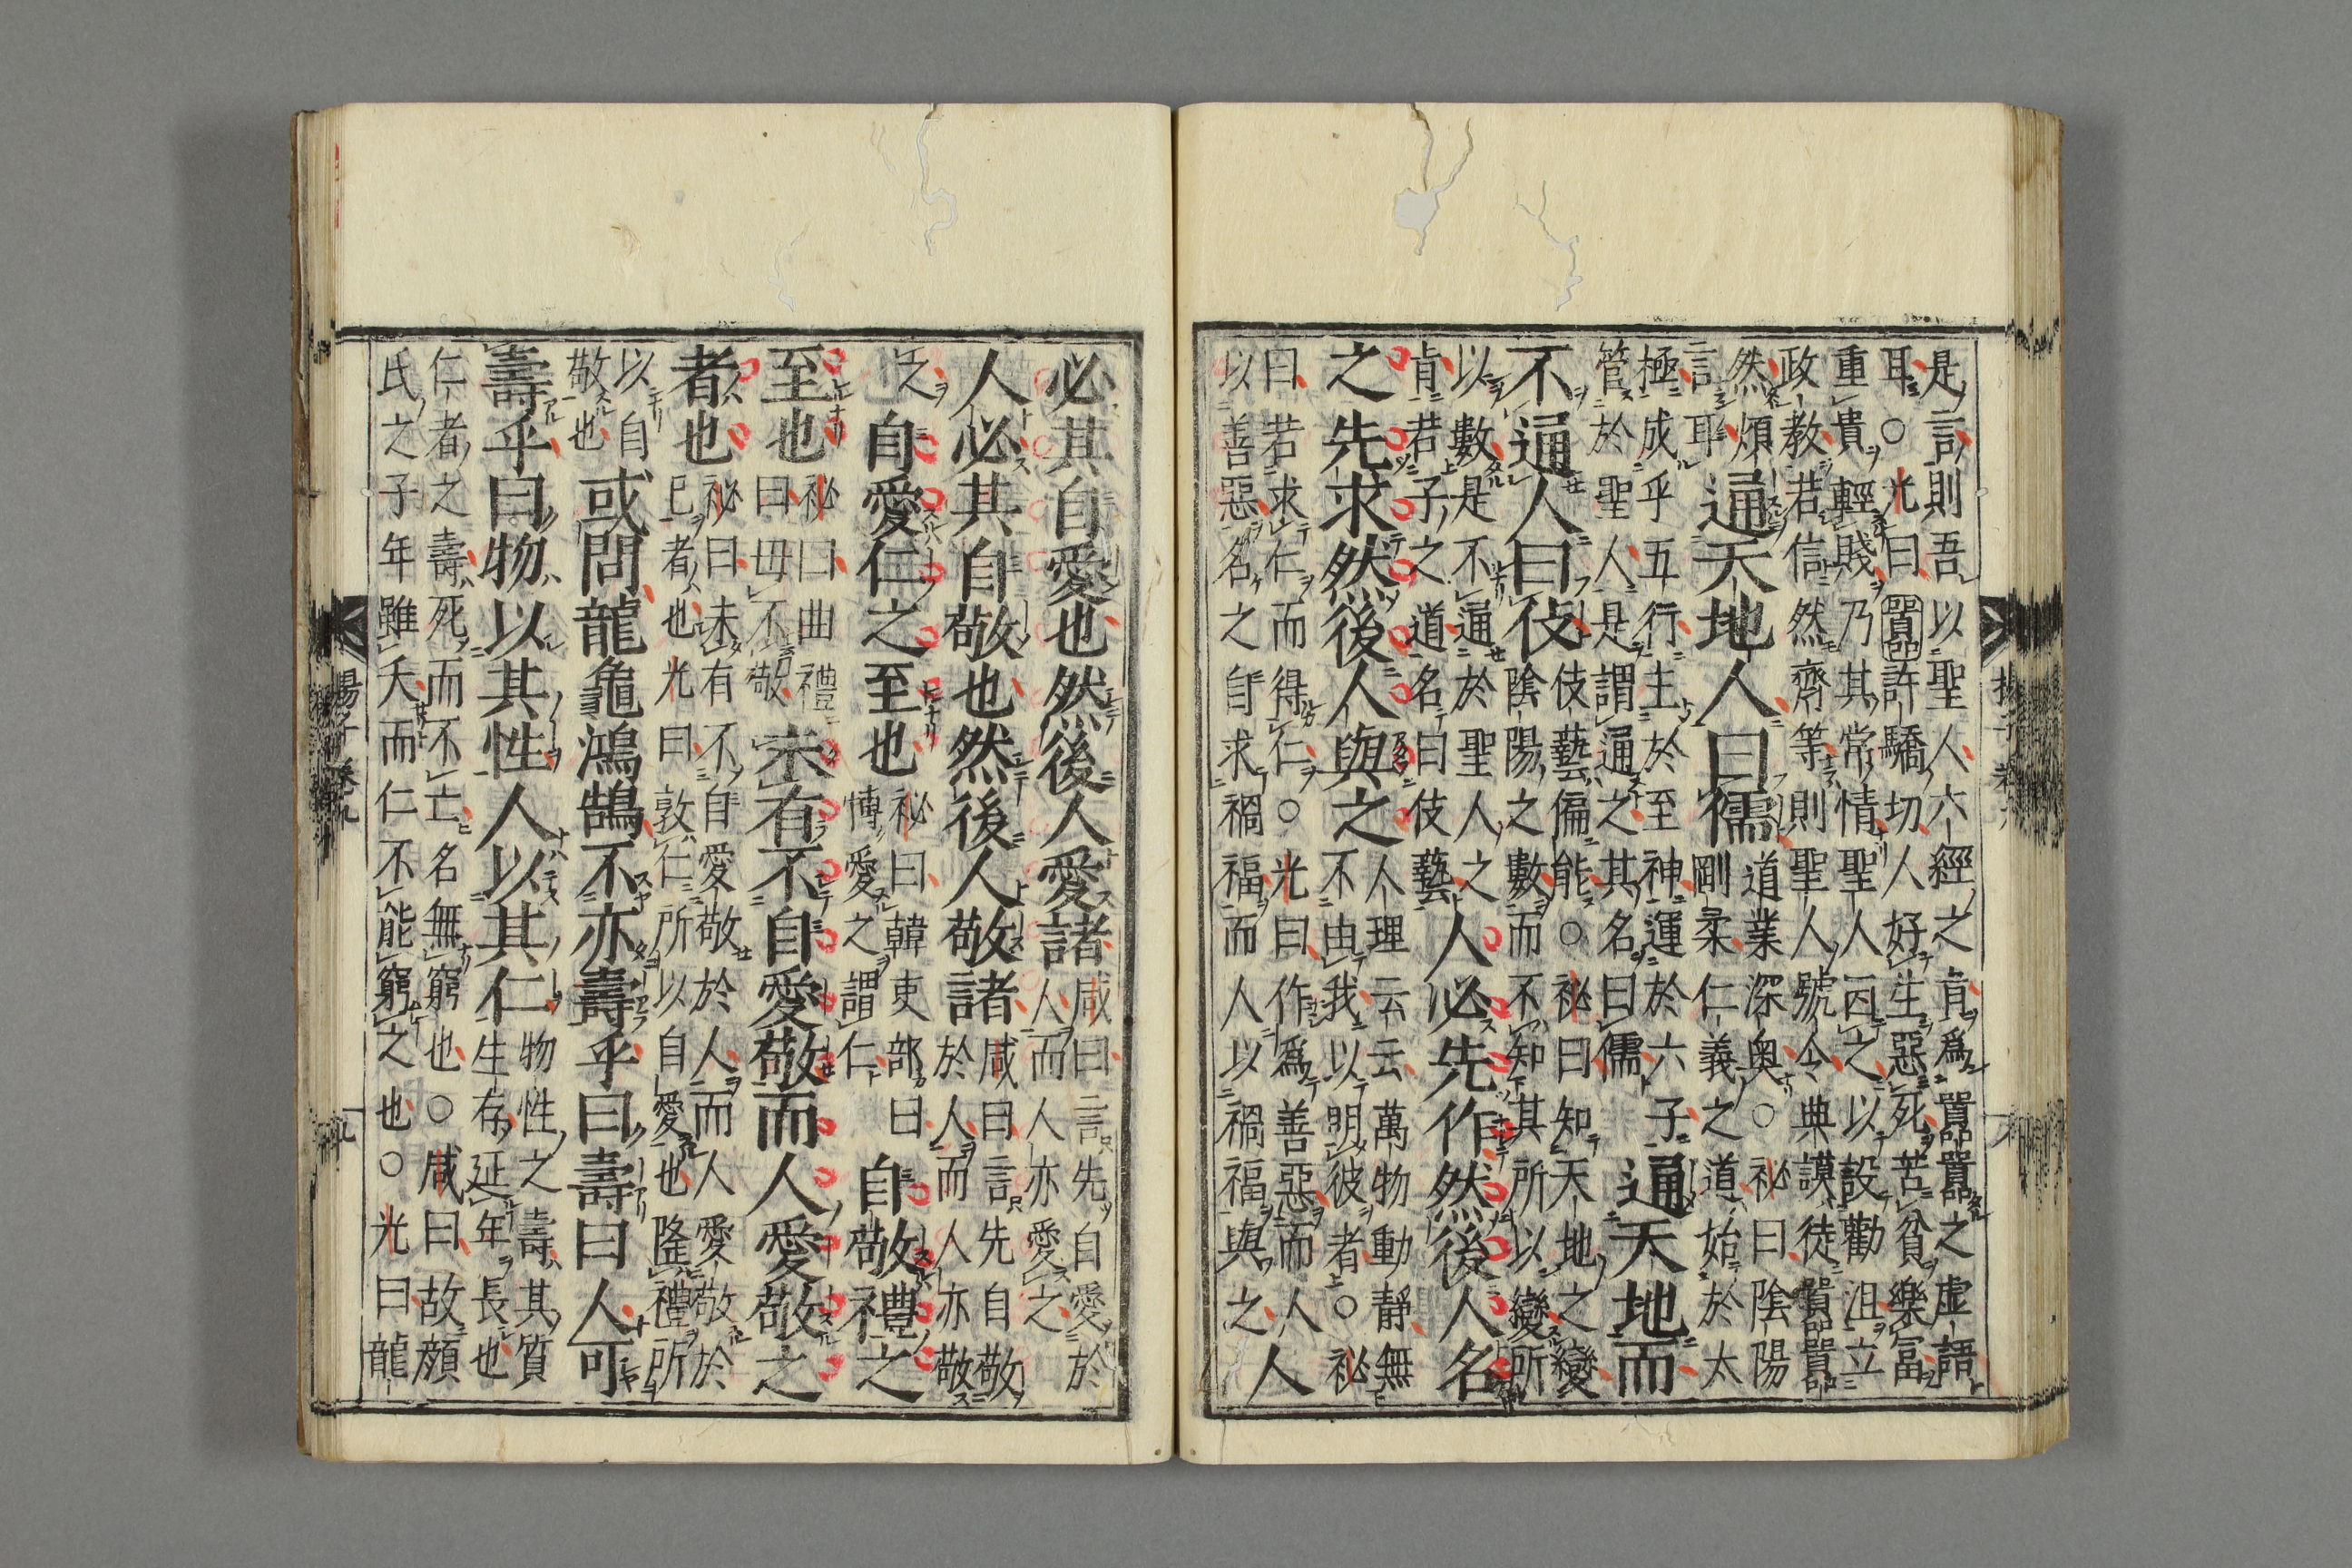 是言則吾以聖人六經之旨爲囂囂之虛語
耳○光曰囂許驕切人好生惡死苦貧樂富
重貴輕賤乃其常情聖人因之以設勸沮立
政教若信然齊等則聖人號令典謨徒囂囂
然煩
言耳
通天地人曰儒
道業深奥○祕曰陰陽
剛柔仁義之道始於太
極成乎五行生於至神運於六子
管於聖人是謂通之其名曰儒
通天地而
不通人曰伎
伎藝偏能○祕曰知天地之變
陰陽之數而不知其所以變所
以數是不通於聖人之
肯若子之道名曰伎藝
人必先作然後人名
之先求然後人與之
人理云云萬物動靜無
不由我以明彼者○祕
曰若求仁而得仁○光曰作爲善惡而人
以善惡名之自求禍福而人以禍福與之
人
必其自愛也然後人愛諸
咸曰言先自愛於
人而人亦愛之
人必其自敬也然後人敬諸
咸曰言先自敬
於人而人亦敬
之
自愛仁之至也
祕曰韓吏部曰
博愛之謂仁
自敬禮之
至也
祕曰曲禮
曰毋不敬
未有不自愛敬而人愛敬之
者也
祕曰未有不自愛敬於人而人愛敬於
已者也光曰敦仁所以自愛也隆禮所
以自
敬也
或問龍龜鴻鵠不亦壽乎曰壽曰人可
壽乎曰物以其性人以其仁
物性之壽其質
生存延年長也
仁者之壽死而不亡名無窮也○咸曰故顔
氏之子年雖夭而仁不能窮之也○光曰龍
揚子卷九